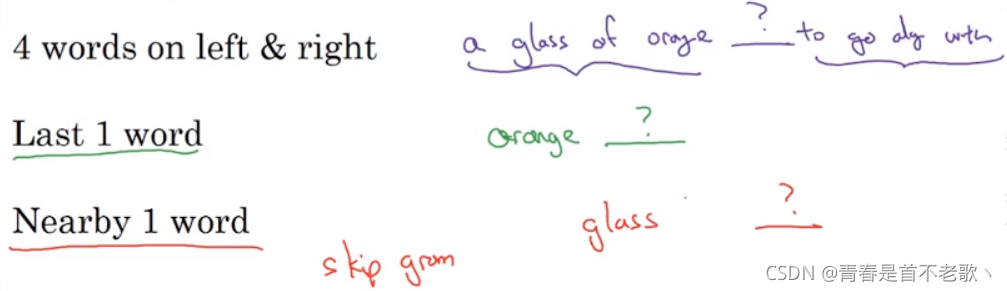 4 words on left & right a glass of orange ? to go alg with
Last 1 word orange ?
Nearby 1 word glass ?
skip gram
CSDN @青春是首不老歌丶